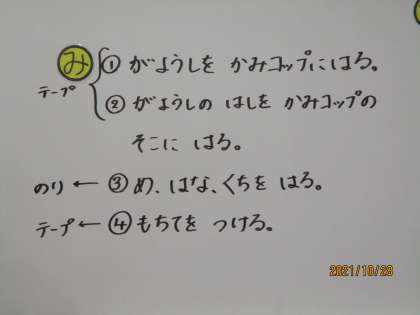 み ① がようしを かみコップにはる。
テープ ② がようしの はしを かみコップの
そこに はる。
のり ← ③ め、はな、くちを はる。
テープ ← ④ もちてを つける。
2021/10/28